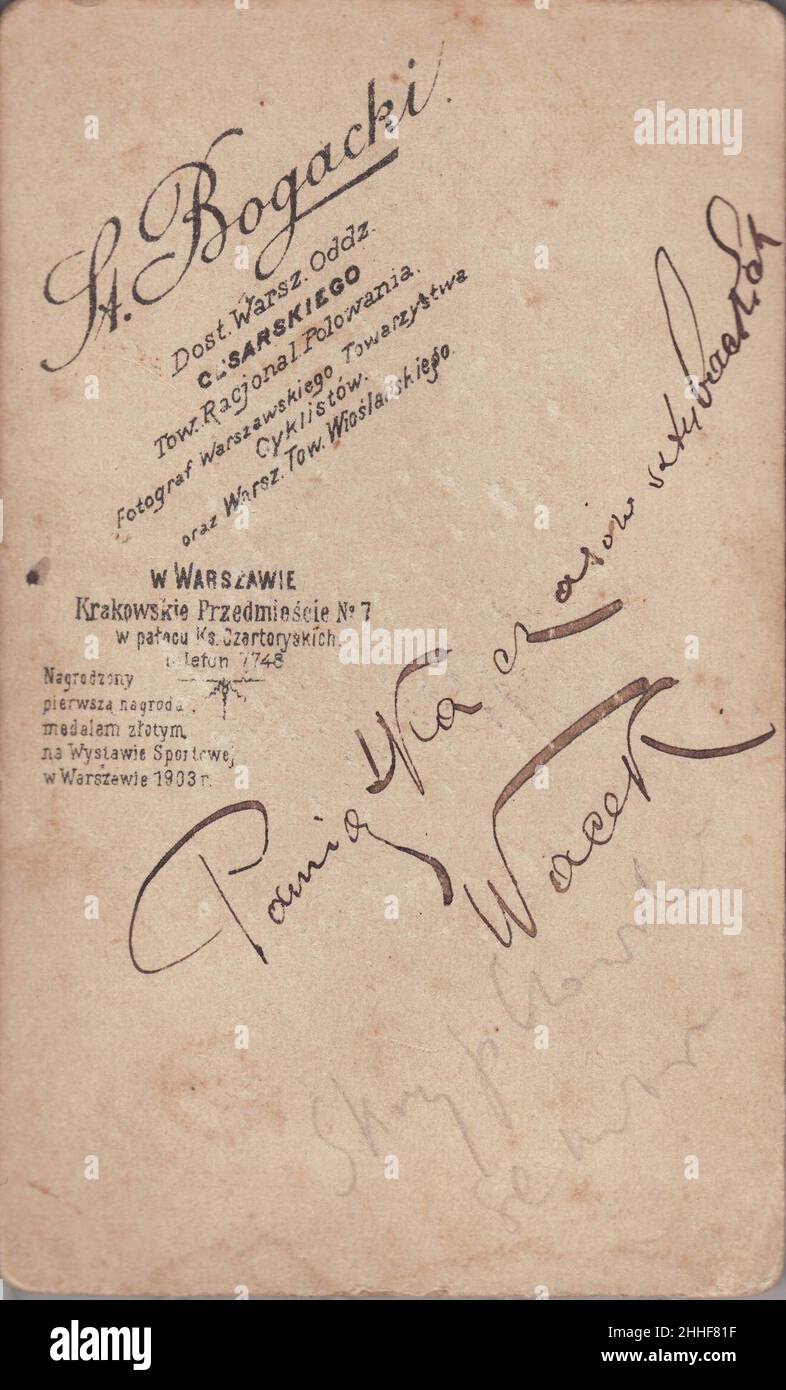 St. Bogacki.
Dost. Warsz. Oddz.
CESARSKIEGO
Tow. Racjonal. Polowania.
Fotograf Warszawskiego Towarzystwa
Cyklistów.
oraz Warsz. Tow. Wioślarskiego.
W WARSZAWIE
Krakowskie Przedmieście № 7
w pałacu Ks. Czartoryskich.
Telefon 7748
Nagrodzony
pierwszą nagrodą,
medalem złotym,
na Wystawie Sportowej
w Warszawie 1903 r.
Pamiątka czasów
Wacek
a
alamy
alamy
Image ID: 2HHF81F
www.alamy.com